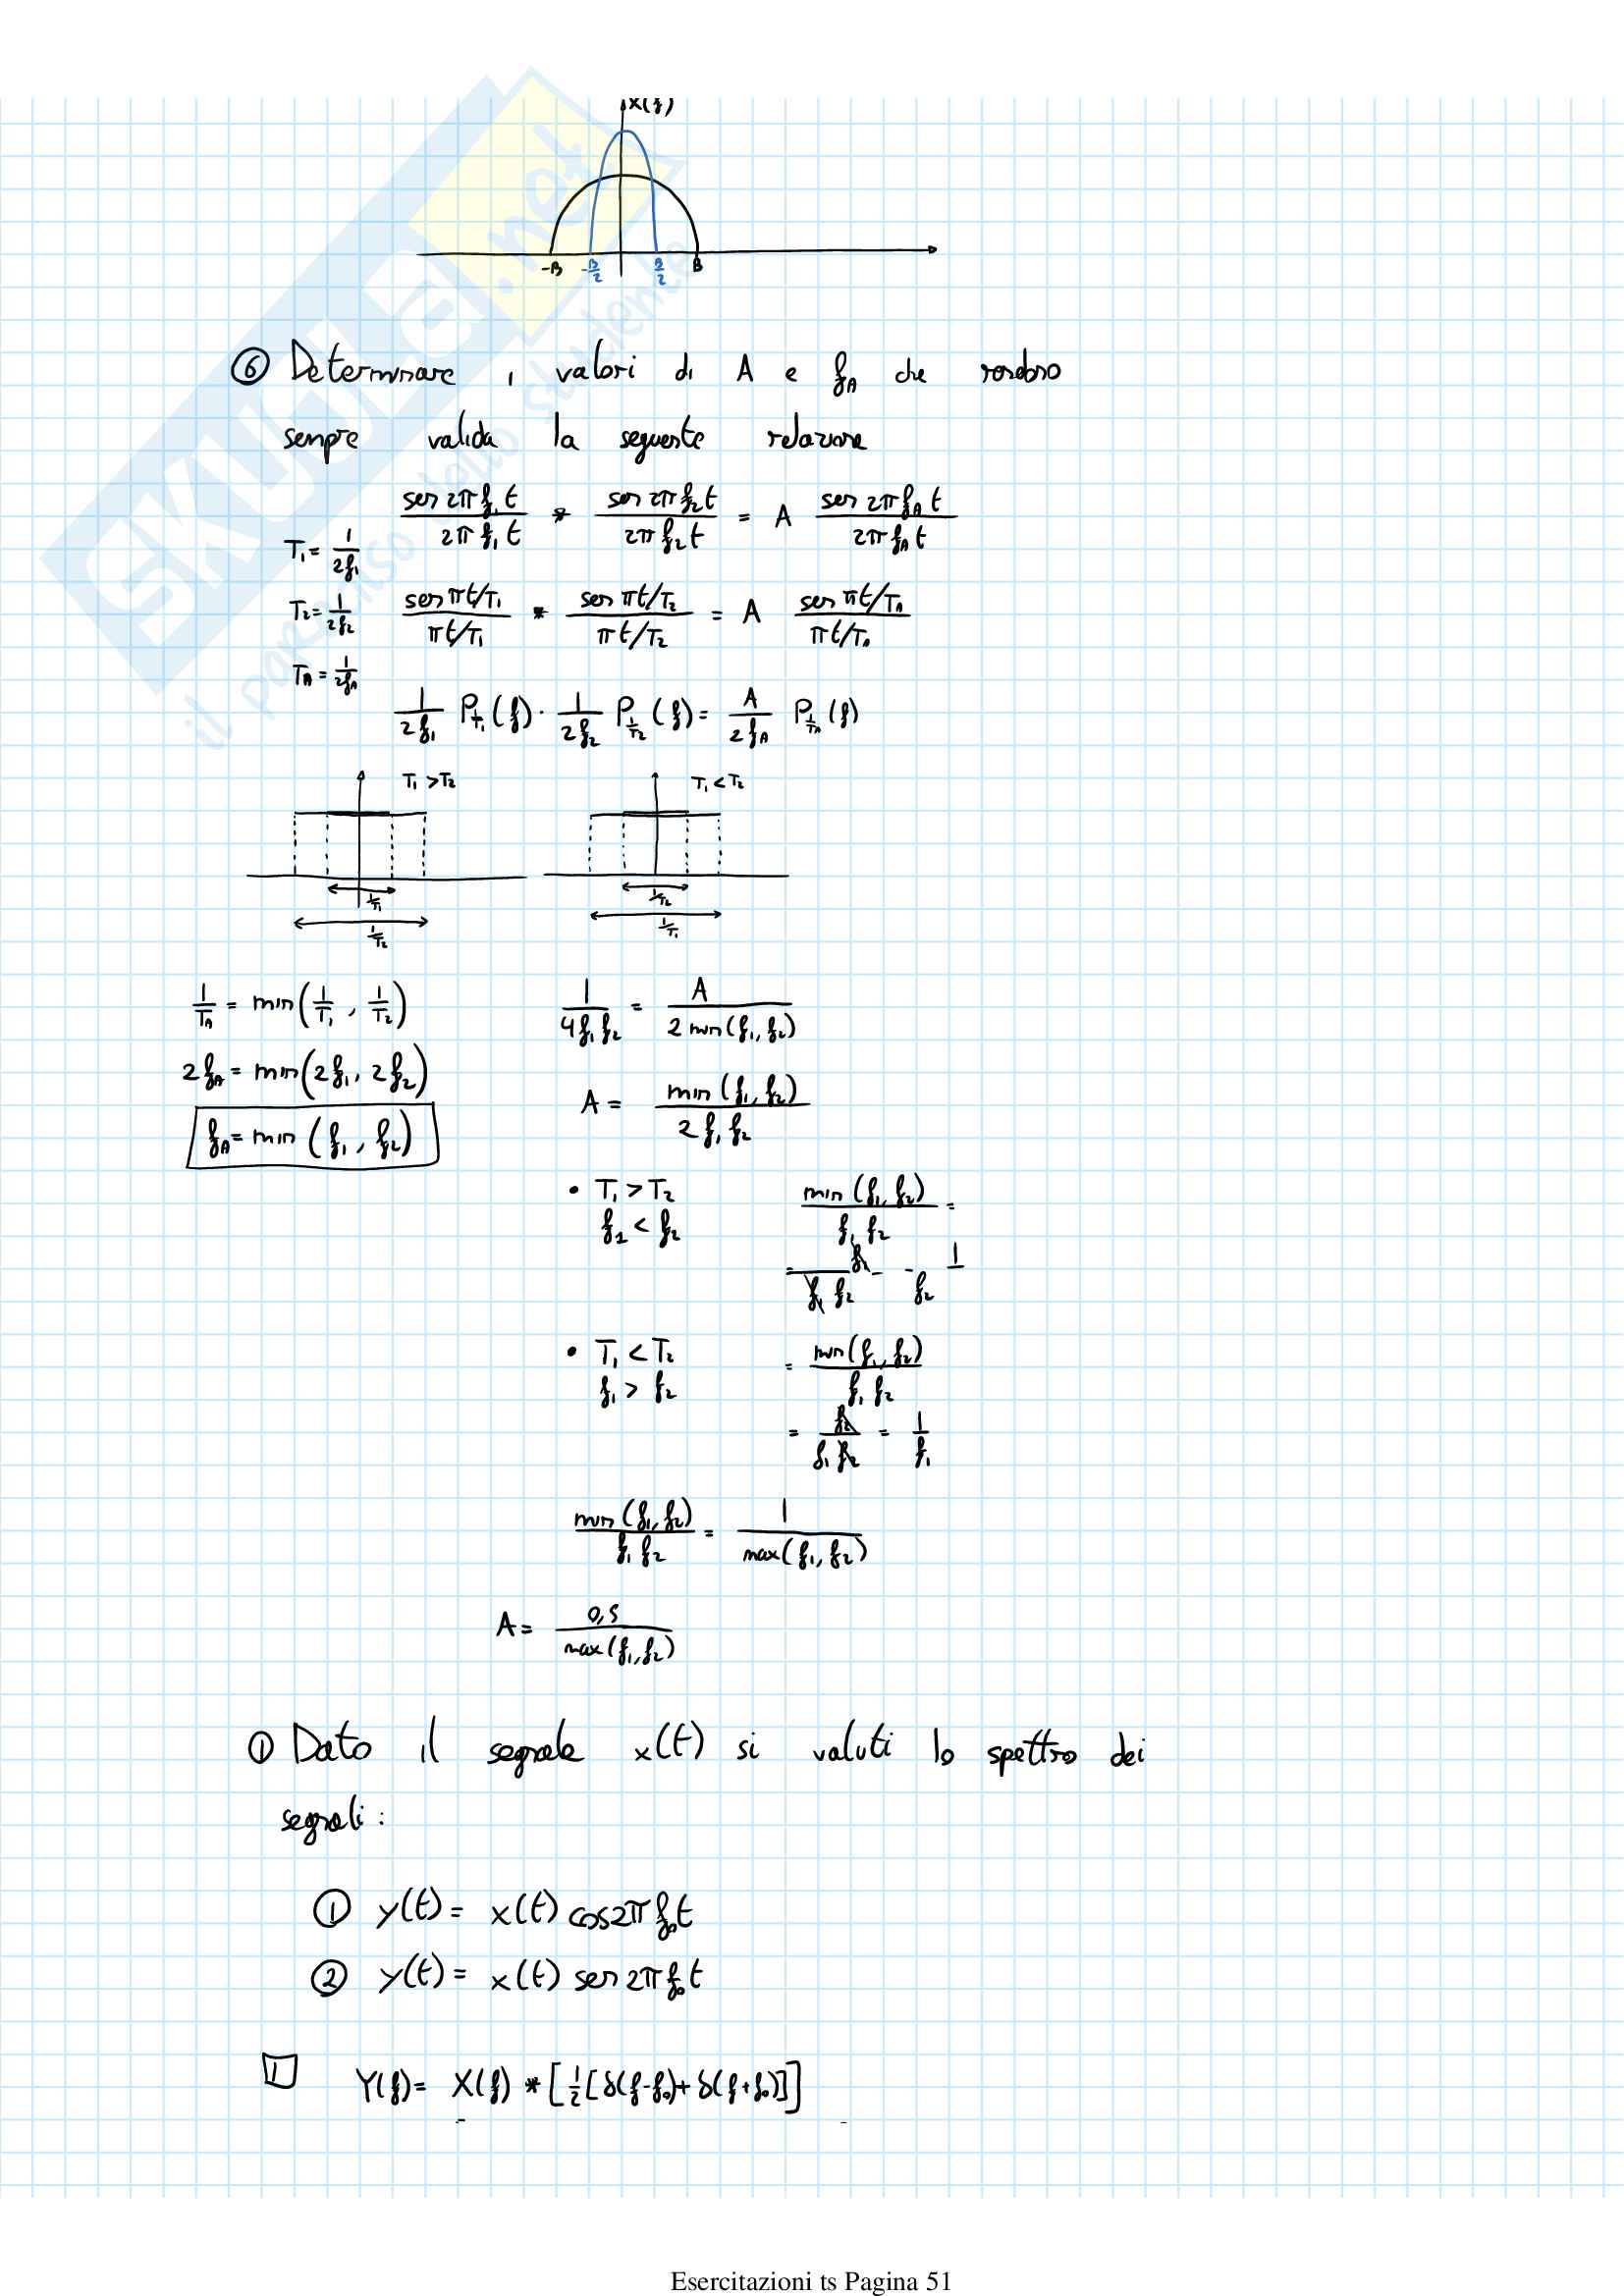 X(f)
-B -B/2 B/2 B
⑥ Determinare i valori di A e f_A che rendono
sempre valida la seguente relazione
sen 2πf₁t / 2πf₁t * sen 2πf₂t / 2πf₂t = A sen 2πf_A t / 2πf_A t
T₁ = 1/2f₁
T₂ = 1/2f₂ sen πt/T₁ / πt/T₁ * sen πt/T₂ / πt/T₂ = A sen πt/T_A / πt/T_A
T_A = 1/2f_A
1/2f₁ P_{1/T₁}(f) · 1/2f₂ P_{1/T₂}(f) = A/2f_A P_{1/T_A}(f)
T₁ > T₂ T₁ < T₂
1/T₁ 1/T₂
1/T₂ 1/T₁
1/T_A = min(1/T₁, 1/T₂) 1/4f₁f₂ = A / 2 min(f₁, f₂)
2f_A = min(2f₁, 2f₂) A = min(f₁, f₂) / 2f₁f₂
f_A = min(f₁, f₂)
• T₁ > T₂ min(f₁, f₂) / f₁f₂ =
f₁ < f₂
= f₁ / f₁f₂ = 1/f₂
• T₁ < T₂ = min(f₁, f₂) / f₁f₂
f₁ > f₂
= f₂ / f₁f₂ = 1/f₁
min(f₁, f₂) / f₁f₂ = 1 / max(f₁, f₂)
A = 0,5 / max(f₁, f₂)
① Dato il segnale x(t) si valuti lo spettro dei
segnali:
① y(t) = x(t) cos2πf₀t
② y(t) = x(t) sen2πf₀t
1 Y(f) = X(f) * [1/2[δ(f-f₀)+δ(f+f₀)]]
SKUOLA.net
il paradiso dello studente
Esercitazioni ts Pagina 51